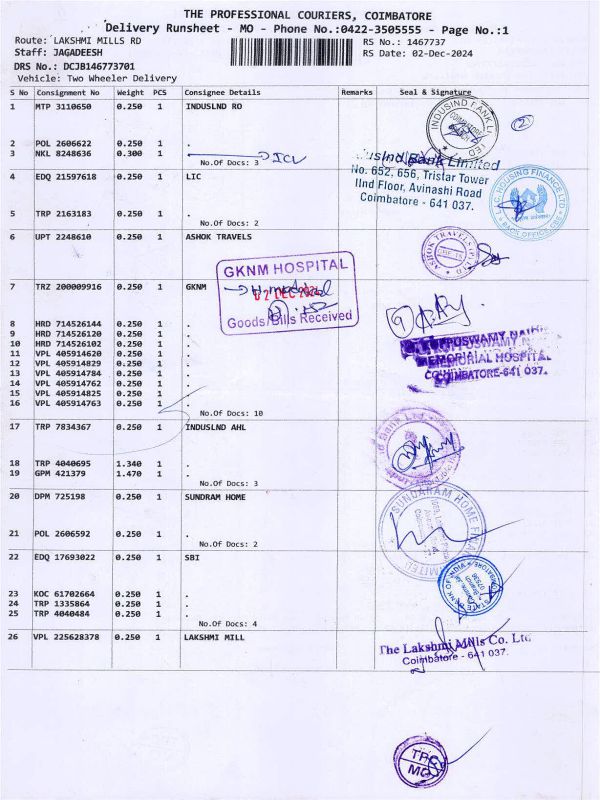 THE PROFESSIONAL COURIERS, COIMBATORE
Delivery Runsheet - MO - Phone No.:0422-3505555 - Page No.:1
Route: LAKSHMI MILLS RD
RS No.: 1467737
Staff: JAGADEESH
RS Date: 02-Dec-2024
DRS No.: DCJB146773701
Vehicle: Two Wheeler Delivery
S No Consignment No Weight PCS Consignee Details Remarks Seal & Signature
1 MTP 3110650 0.250 1 INDUSLND RO
2 POL 2606622 0.250 1 .
3 NKL 8248636 0.300 1 .
No.Of Docs: 3
ICL
INDUSIND BANK LIMITED
COIMBATORE
2
IndusInd Bank Limited
No. 652, 656, Tristar Tower
IInd Floor, Avinashi Road
Coimbatore - 641 037.
4 EDQ 21597618 0.250 1 LIC
5 TRP 2163183 0.250 1 .
No.Of Docs: 2
L.I.C. HOUSING FINANCE LTD
BACK OFFICE, CBE
6 UPT 2248610 0.250 1 ASHOK TRAVELS
ASHOK TRAVELS
7 TRZ 200009916 0.250 1 GKNM
GKNM HOSPITAL
02 DEC 2024
Goods/Bills Received
8 HRD 714526144 0.250 1 .
9 HRD 714526120 0.250 1 .
10 HRD 714526102 0.250 1 .
11 VPL 405914620 0.250 1 .
12 VPL 405914829 0.250 1 .
13 VPL 405914784 0.250 1 .
14 VPL 405914762 0.250 1 .
15 VPL 405914825 0.250 1 .
16 VPL 405914763 0.250 1 .
No.Of Docs: 10
KUPPUSWAMY NAIDU
MEMORIAL HOSPITAL
COIMBATORE-641 037.
17 TRP 7834367 0.250 1 INDUSLND AHL
18 TRP 4040695 1.340 1 .
19 GPM 421379 1.470 1 .
No.Of Docs: 3
20 DPM 725198 0.250 1 SUNDRAM HOME
21 POL 2606592 0.250 1 .
No.Of Docs: 2
SUNDARAM HOME FINANCE LIMITED
22 EDQ 17693022 0.250 1 SBI
23 KOC 61702664 0.250 1 .
24 TRP 1335864 0.250 1 .
25 TRP 4040484 0.250 1 .
No.Of Docs: 4
STATE BANK OF
07536
26 VPL 225628378 0.250 1 LAKSHMI MILL
The Lakshmi Mills Co. Ltd
Coimbatore - 641 037.
TPC
MO